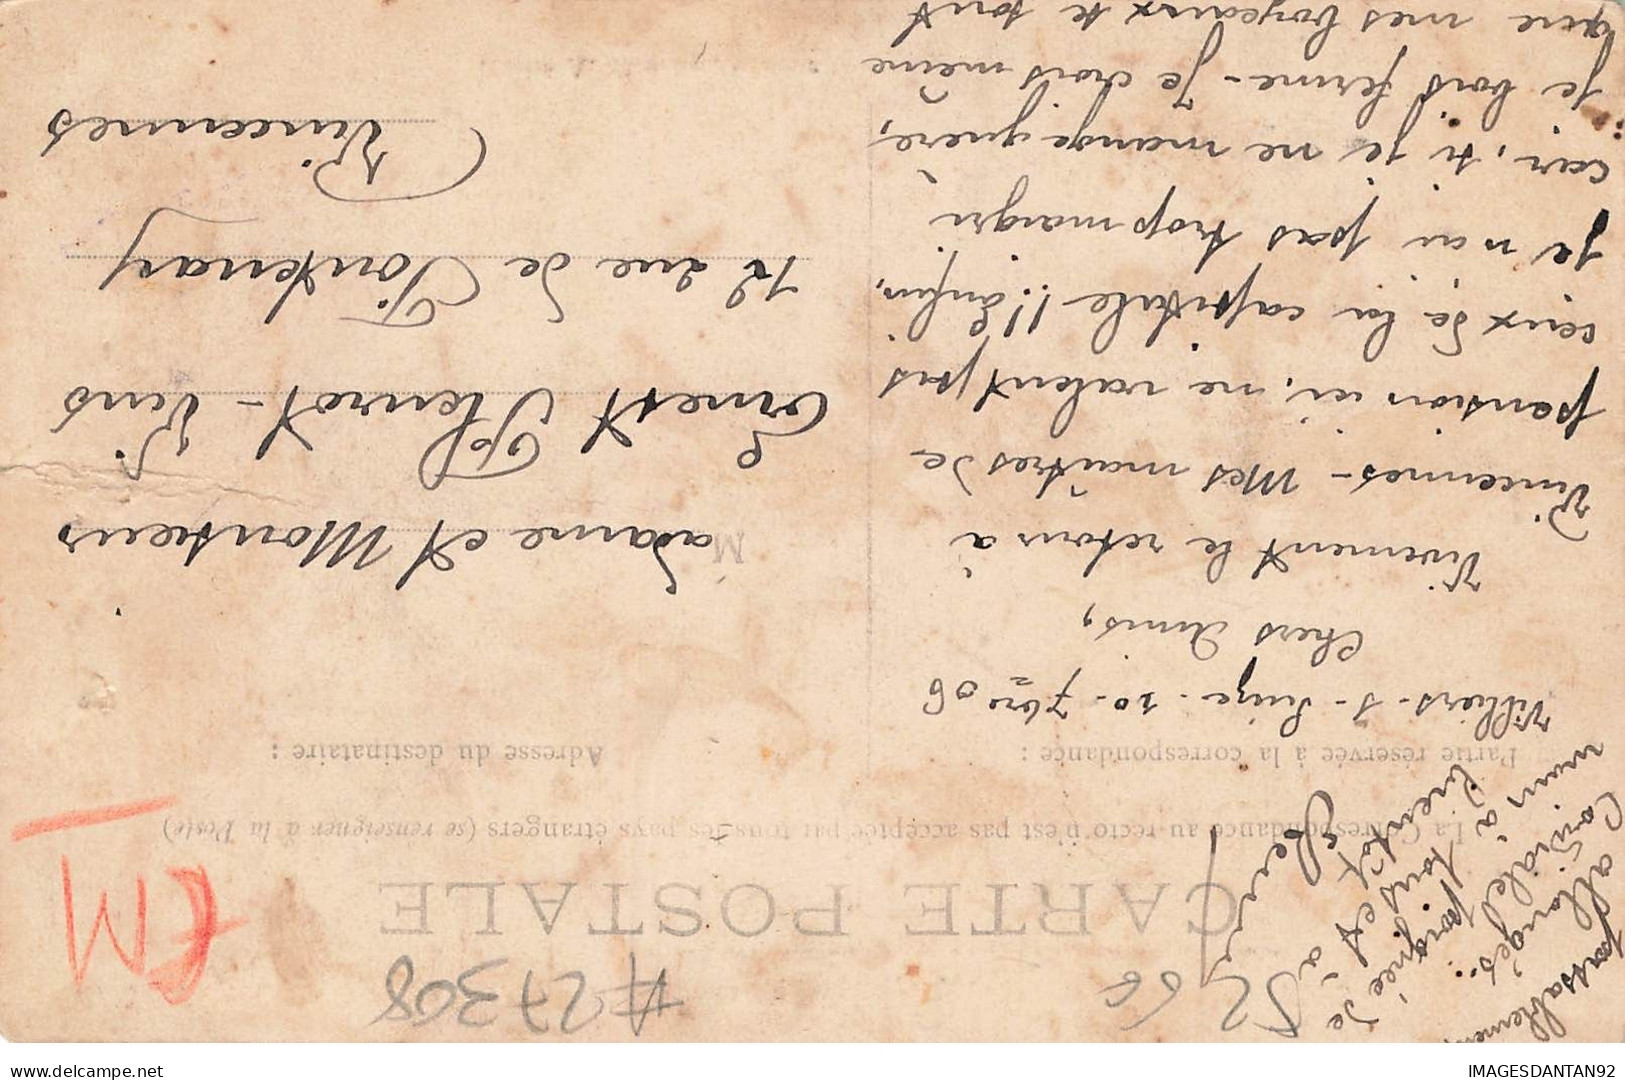 #27308
52 66
EM
CARTE POSTALE
La Correspondance au recto n'est pas acceptée par tous les pays étrangers (se renseigner à la Poste)
Partie réservée à la correspondance :
Adresse du destinataire :
Villiers-s-Suize. 10-7bre 06
Chers Amis,
Vivement le retour à
Vincennes - Mes maîtres de
pension ici, ne valent pas
ceux de la capitale !! Enfin,
je n'ai pas trop maigri
car, si je ne mange guère,
je bois ferme - Je crois même
que mes boyeaux se sont
passablement
allongés..
Cordiale
poignée de
main à
tous et à
bientôt
M
adame et Monsieur
Ernest Flenrot - Vins
12 rue de Fontenay
Vincennes
IMAGESDANTAN92